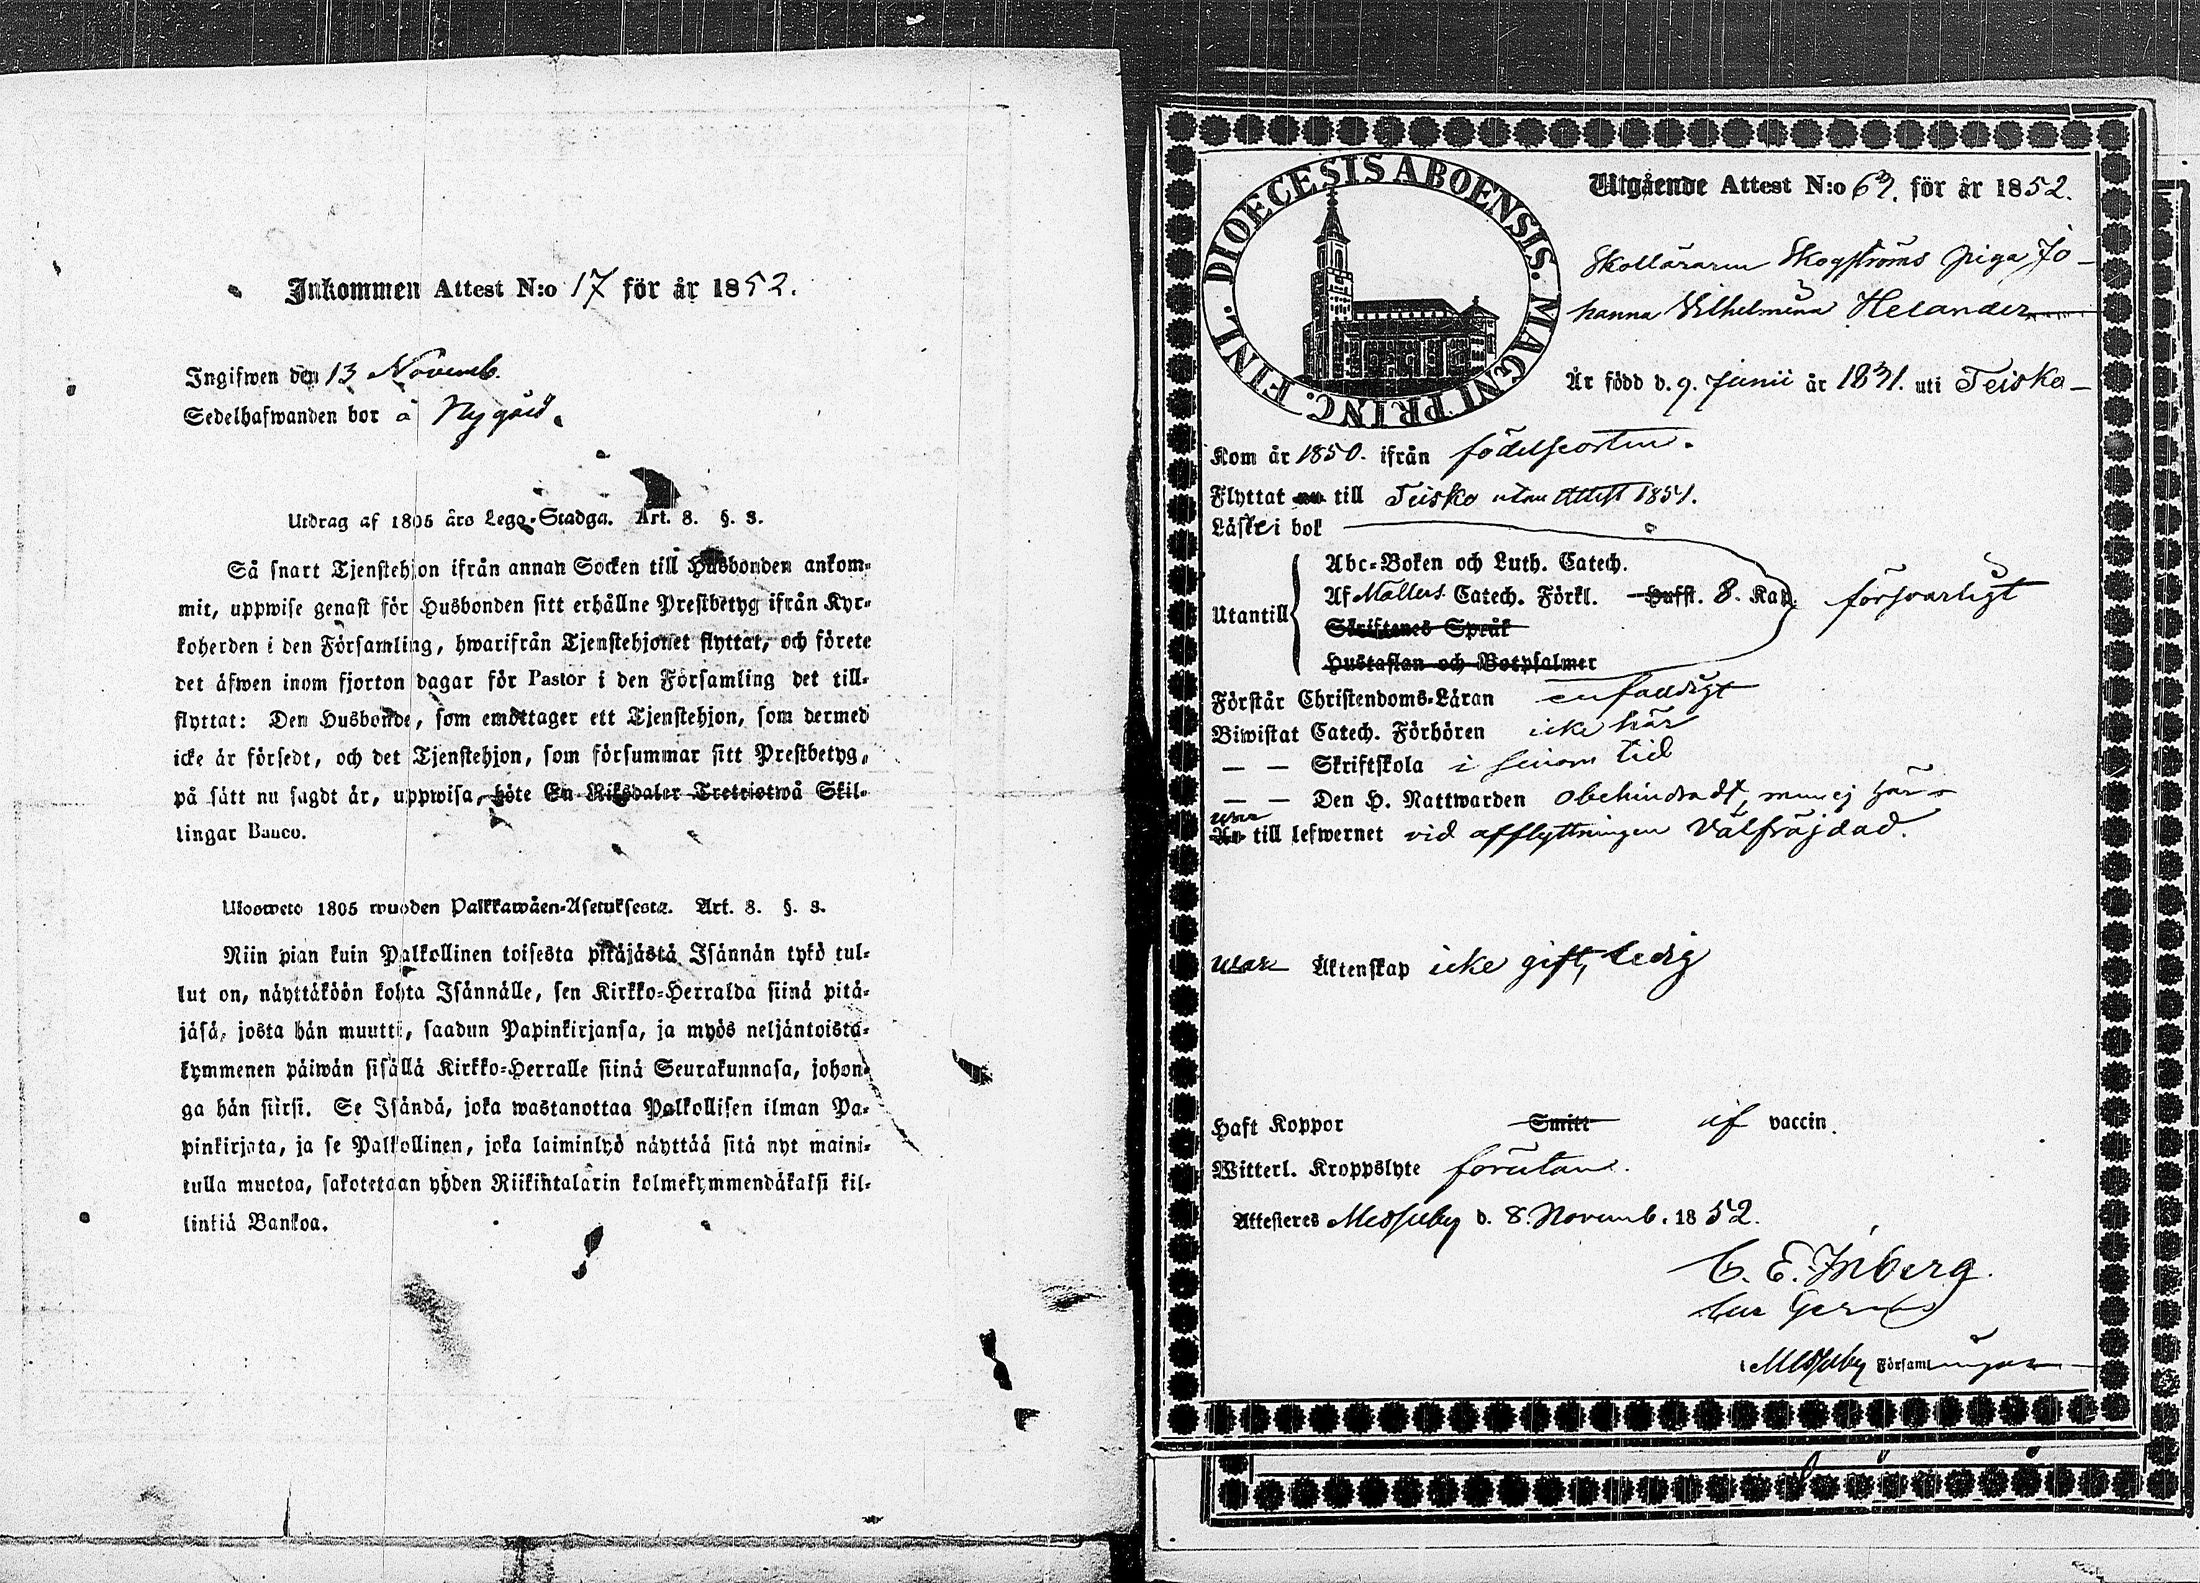 Inkommen Attest N:o 17 för år 1852.
Ingifwen den 13 Novemb.
Sedelhafwanden bor å Nygård.
Utdrag af 1805 års Lego-Stadga. Art. 8. §. 3.
Så snart Tjenstehjon ifrån annan Socken till Husbonden ankom-
mit, uppwise genast för Husbonden sitt erhållne Prestbetyg ifrån Kyr-
koherden i den Församling, hwarifrån Tjenstehjonet flyttat, och förete
det äfwen inom fjorton dagar för Pastor i den Församling det till-
flyttat: Den Husbonde, som emottager ett Tjenstehjon, som dermed
icke är försedt, och det Tjenstehjon, som försummar sitt Prestbetyg,
på sätt nu sagdt är, uppwisa, böte En Riksdaler Trettiotwå Skil-
lingar Banco.
Ulosweto 1805 wuoden Palkkawäen-Asetuksesta. Art. 8. §. 3.
Niin pian kuin Palkollinen toisesta pitäjästä Isännän tykö tul-
lut on, näyttäköön kohta Isännälle, sen Kirkko-Herralda siinä pitä-
jäsä, josta hän muutti, saadun Papinkirjansa, ja myös neljäntoista-
kymmenen päiwän sisällä Kirkko-Herralle siinä Seurakunnasa, johon-
ga hän siirsi. Se Isändä, joka wastanottaa Palkollisen ilman Pa-
pinkirjata, ja se Palkollinen, joka laiminlyö näyttää sitä nyt maini-
tulla muotoa, sakotetaan yhden Riikintalarin kolmekymmendäkaksi kil-
linkiä Bankoa.
DIOECESIS ABOENSIS. MAGNI PRINC. FINL.
Utgående Attest N:o 63. för år 1852.
Skolläraren Skogströms piga Jo-
hanna Vilhelmina Helander
Är född d. 9. Junii år 1831. uti Teisko
Kom år 1850. ifrån födelseorten.
Flyttat nu till Teisko utan Attest 1851.
Läste i bok
Abc-Boken och Luth. Catech.
Utantill Af Möllers Catech. Förkl. Hufst. 8. Kap. försvarligt
Skriftenes Språk
Hustaflan och Botpsalmer
Förstår Christendoms-Läran enfaldigt
Biwistat Catech. Förhören icke här
— — Skriftskola i sinom tid
— — Den H. Nattwarden obehindradt, men ej här
war
Är till lefwernet vid afflyttningen välfräjdad.
war Äktenskap icke gift, ledig
Haft Koppor Smitt af vaccin.
Witterl. Kroppslyte förutan.
Attesteres Messuby d. 8. Novemb. 1852.
C. E. Inberg.
i Messuby Församlingar